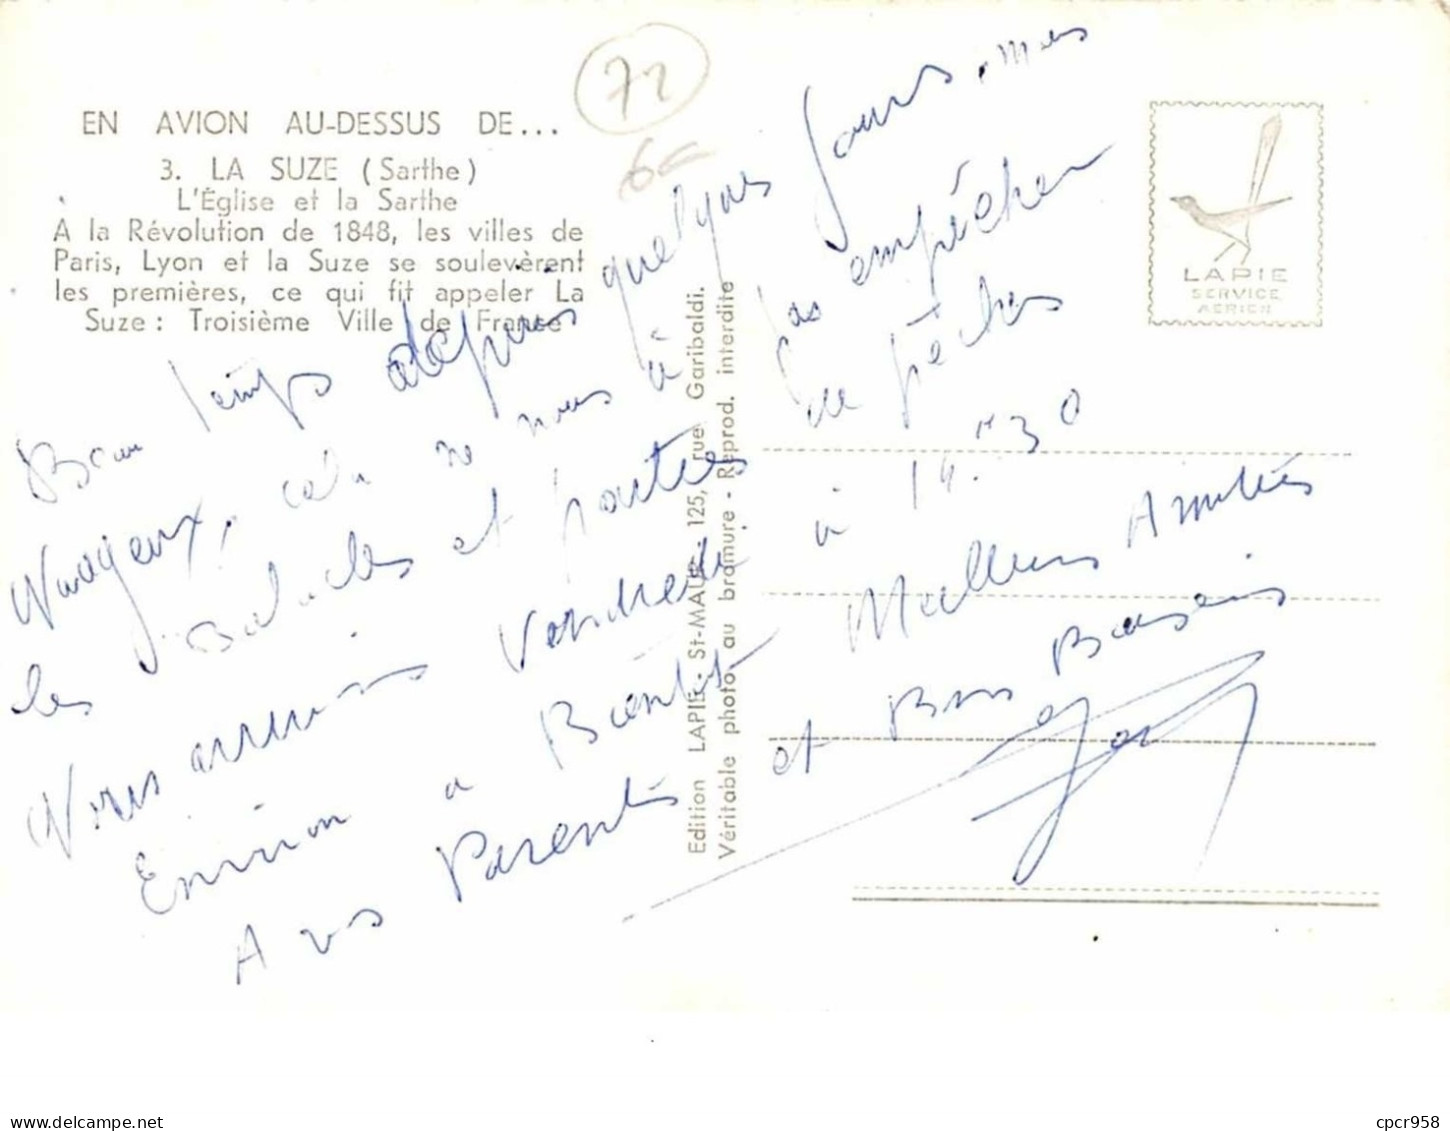 72
6c
EN AVION AU-DESSUS DE...
3. LA SUZE (Sarthe)
L'Église et la Sarthe
À la Révolution de 1848, les villes de
Paris, Lyon et la Suze se soulevèrent
les premières, ce qui fit appeler La
Suze : Troisième Ville de France
Beau temps depuis quelques jours, mais
Nuageux, cela ne nous a pas empêcher
les Balades et parties de pêches
Nous arrivons Vendredi à 14 H 30
Environ à Bientôt Meilleurs Amitiés
A vos Parents et Bons Baisers
Edition LAPIE - St-MAUR 125, rue Garibaldi.
Véritable photo au bromure - Reprod. interdite
LAPIE
SERVICE
AERIEN
cpcr958